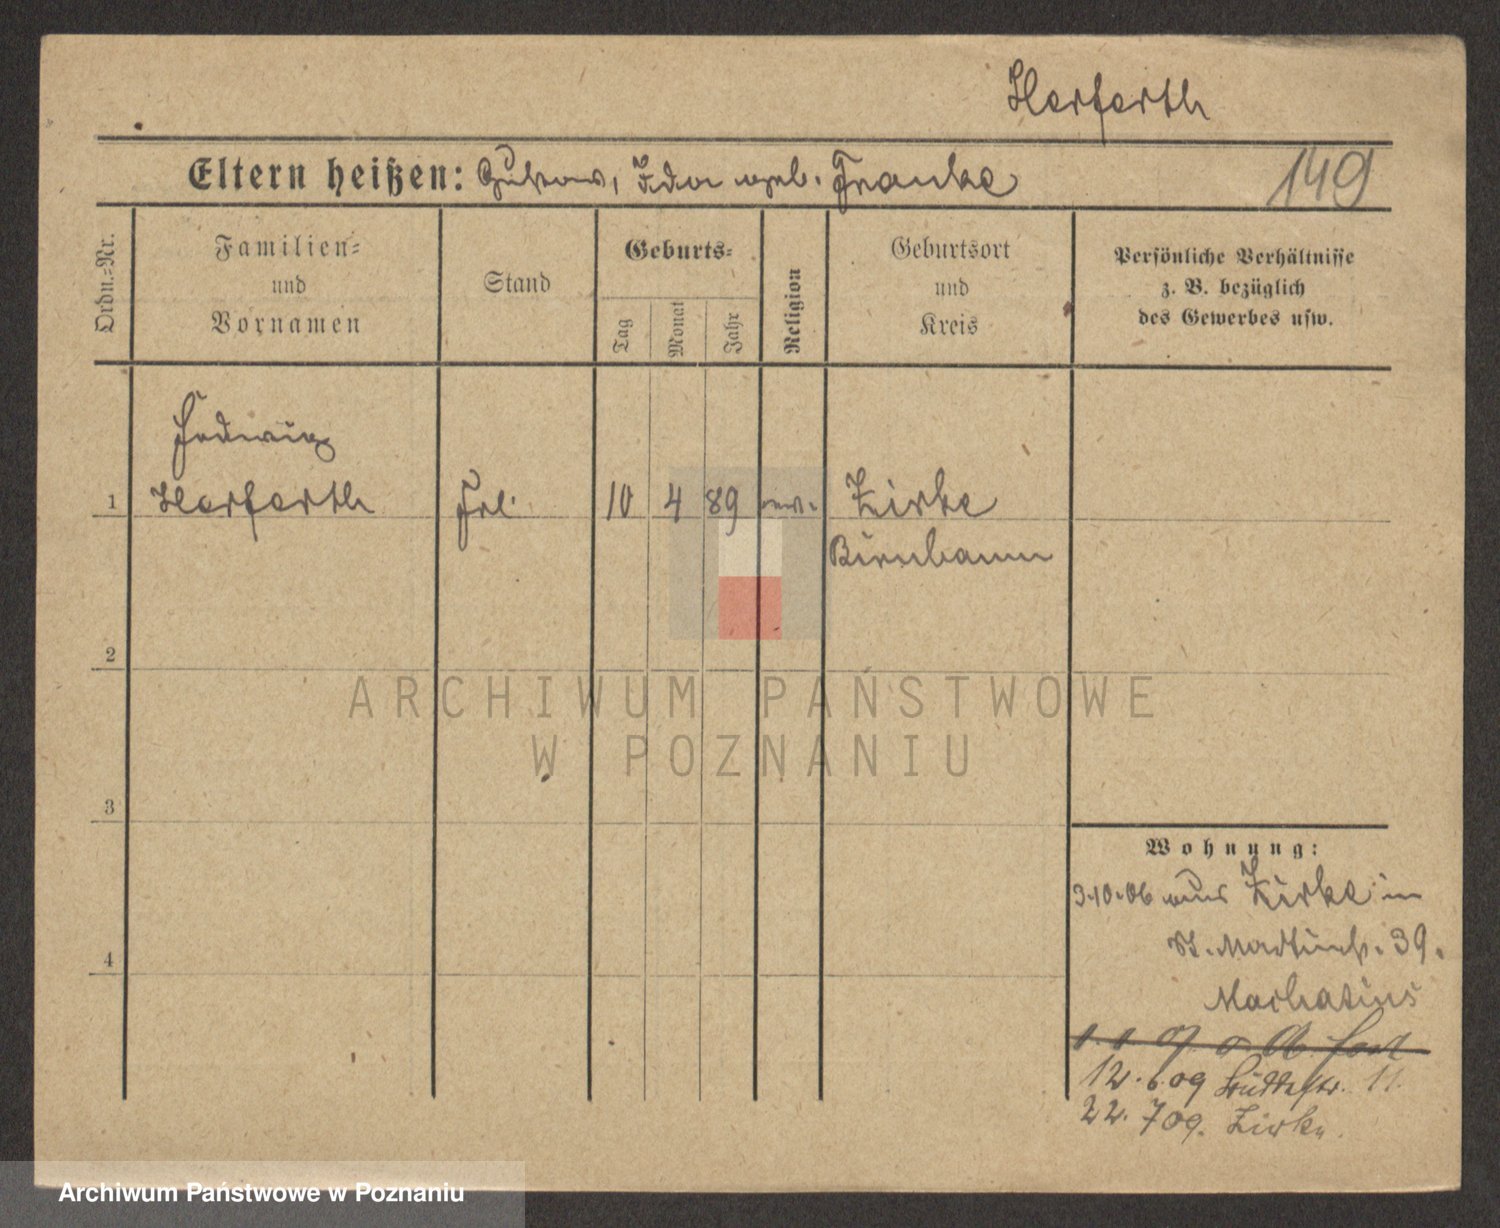 Herforth
149
Eltern heißen: Gustav, Ida geb. Franke
Ordn.=Nr.
Familien=
und
Vornamen
Stand
Geburts=
Tag
Monat
Jahr
Religion
Geburtsort
und
Kreis
Persönliche Verhältnisse
z. B. bezüglich
des Gewerbes usw.
Hedwig
1 Herforth Frl. 10 4 89 ev. Zirke
Birnbaum
2
ARCHIWUM PAŃSTWOWE
W POZNANIU
3
4
Wohnung:
3.10.06 aus Zirke in
St. Martinstr. 39.
12.6.09 11.
22.7 09. Zirke.
Archiwum Państwowe w Poznaniu